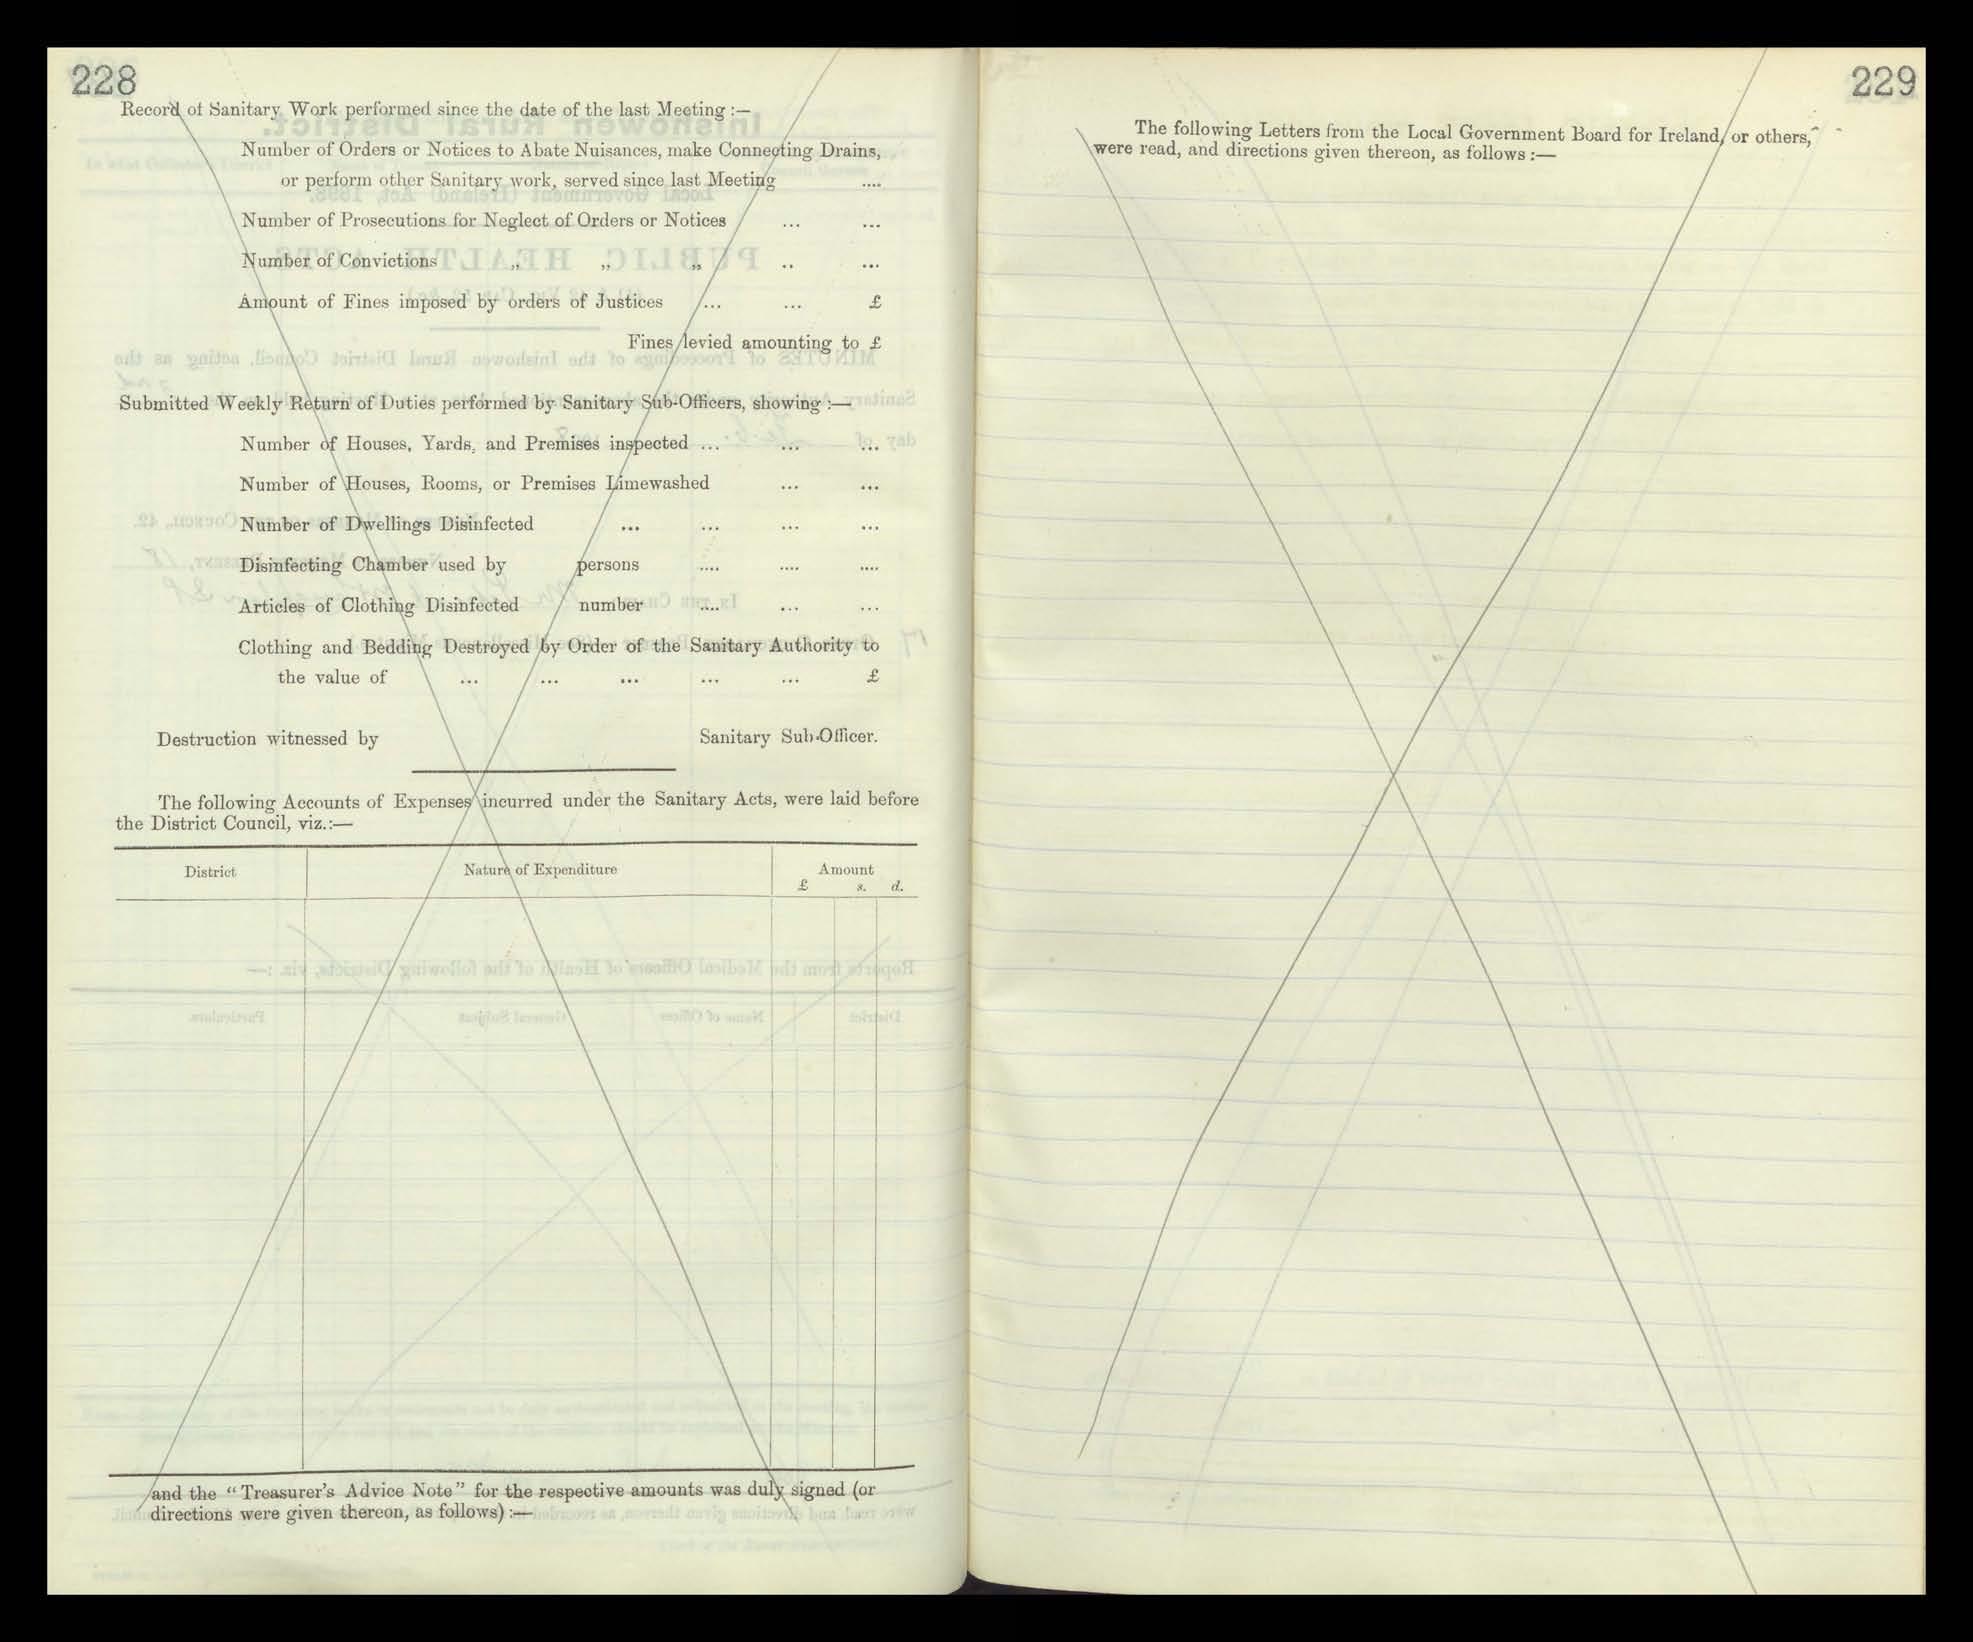 228
Record of Sanitary Work performed since the date of the last Meeting :—
Number of Orders or Notices to Abate Nuisances, make Connecting Drains,
or perform other Sanitary work, served since last Meeting ....
Number of Prosecutions for Neglect of Orders or Notices ... ...
Number of Convictions „ „ „ .. ...
Amount of Fines imposed by orders of Justices ... ... £
Fines levied amounting to £
Submitted Weekly Return of Duties performed by Sanitary Sub-Officers, showing :—
Number of Houses, Yards, and Premises inspected ... ... ...
Number of Houses, Rooms, or Premises Limewashed ... ...
Number of Dwellings Disinfected ... ... ... ...
Disinfecting Chamber used by persons .... .... ....
Articles of Clothing Disinfected number .... ... ...
Clothing and Bedding Destroyed by Order of the Sanitary Authority to
the value of ... ... ... ... ... £
Destruction witnessed by Sanitary Sub-Officer.
The following Accounts of Expenses incurred under the Sanitary Acts, were laid before
the District Council, viz.:—
District Nature of Expenditure Amount
£ s. d.
and the “Treasurer's Advice Note” for the respective amounts was duly signed (or
directions were given thereon, as follows) :—
229
The following Letters from the Local Government Board for Ireland, or others,
were read, and directions given thereon, as follows :—